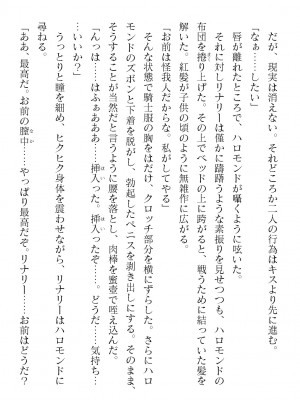 だが、現実は消えない。それどころか二人の行為はキスより先に進む。
「なぁ……したい」
唇が離れたところで、ハロモンドが囁くように呟いた。
それに対しリナリーは僅かに躊躇うような素振りを見せつつも、ハロモンドの
布団を捲り上げた。その上でベッドの上に跨がると、戦うために結っていた髪を
解いた。紅髪が子供の頃のように無雑作に広がる。
「お前は怪我人だからな。私がしてやる」
そんな状態で騎士服の胸をはだけ、クロッチ部分を横にずらした。さらにハロ
モンドのズボンと下着を脱がし、勃起したペニスを剥き出しにする。そのまま、
そうすることが当然だと言うように腰を落とし、肉棒を蜜壺で咥え込んだ。
「んっは……はふぁあああ……挿入った。挿入ったぞ……。どうだ……気持ち
…いいか？」
うっとりと瞳を細め、ヒクヒク身体を震わせながら、リナリーはハロモンドに
尋ねる。
「ああ、最高だ。お前の膣中……やっぱり最高だぞ、リナリー……お前はどうだ？